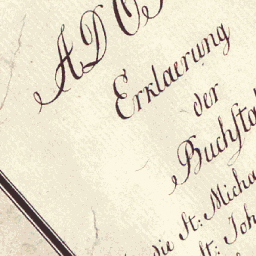 A D O
Erklaerung
der
Buchsta
die St: Micha
St: Joh